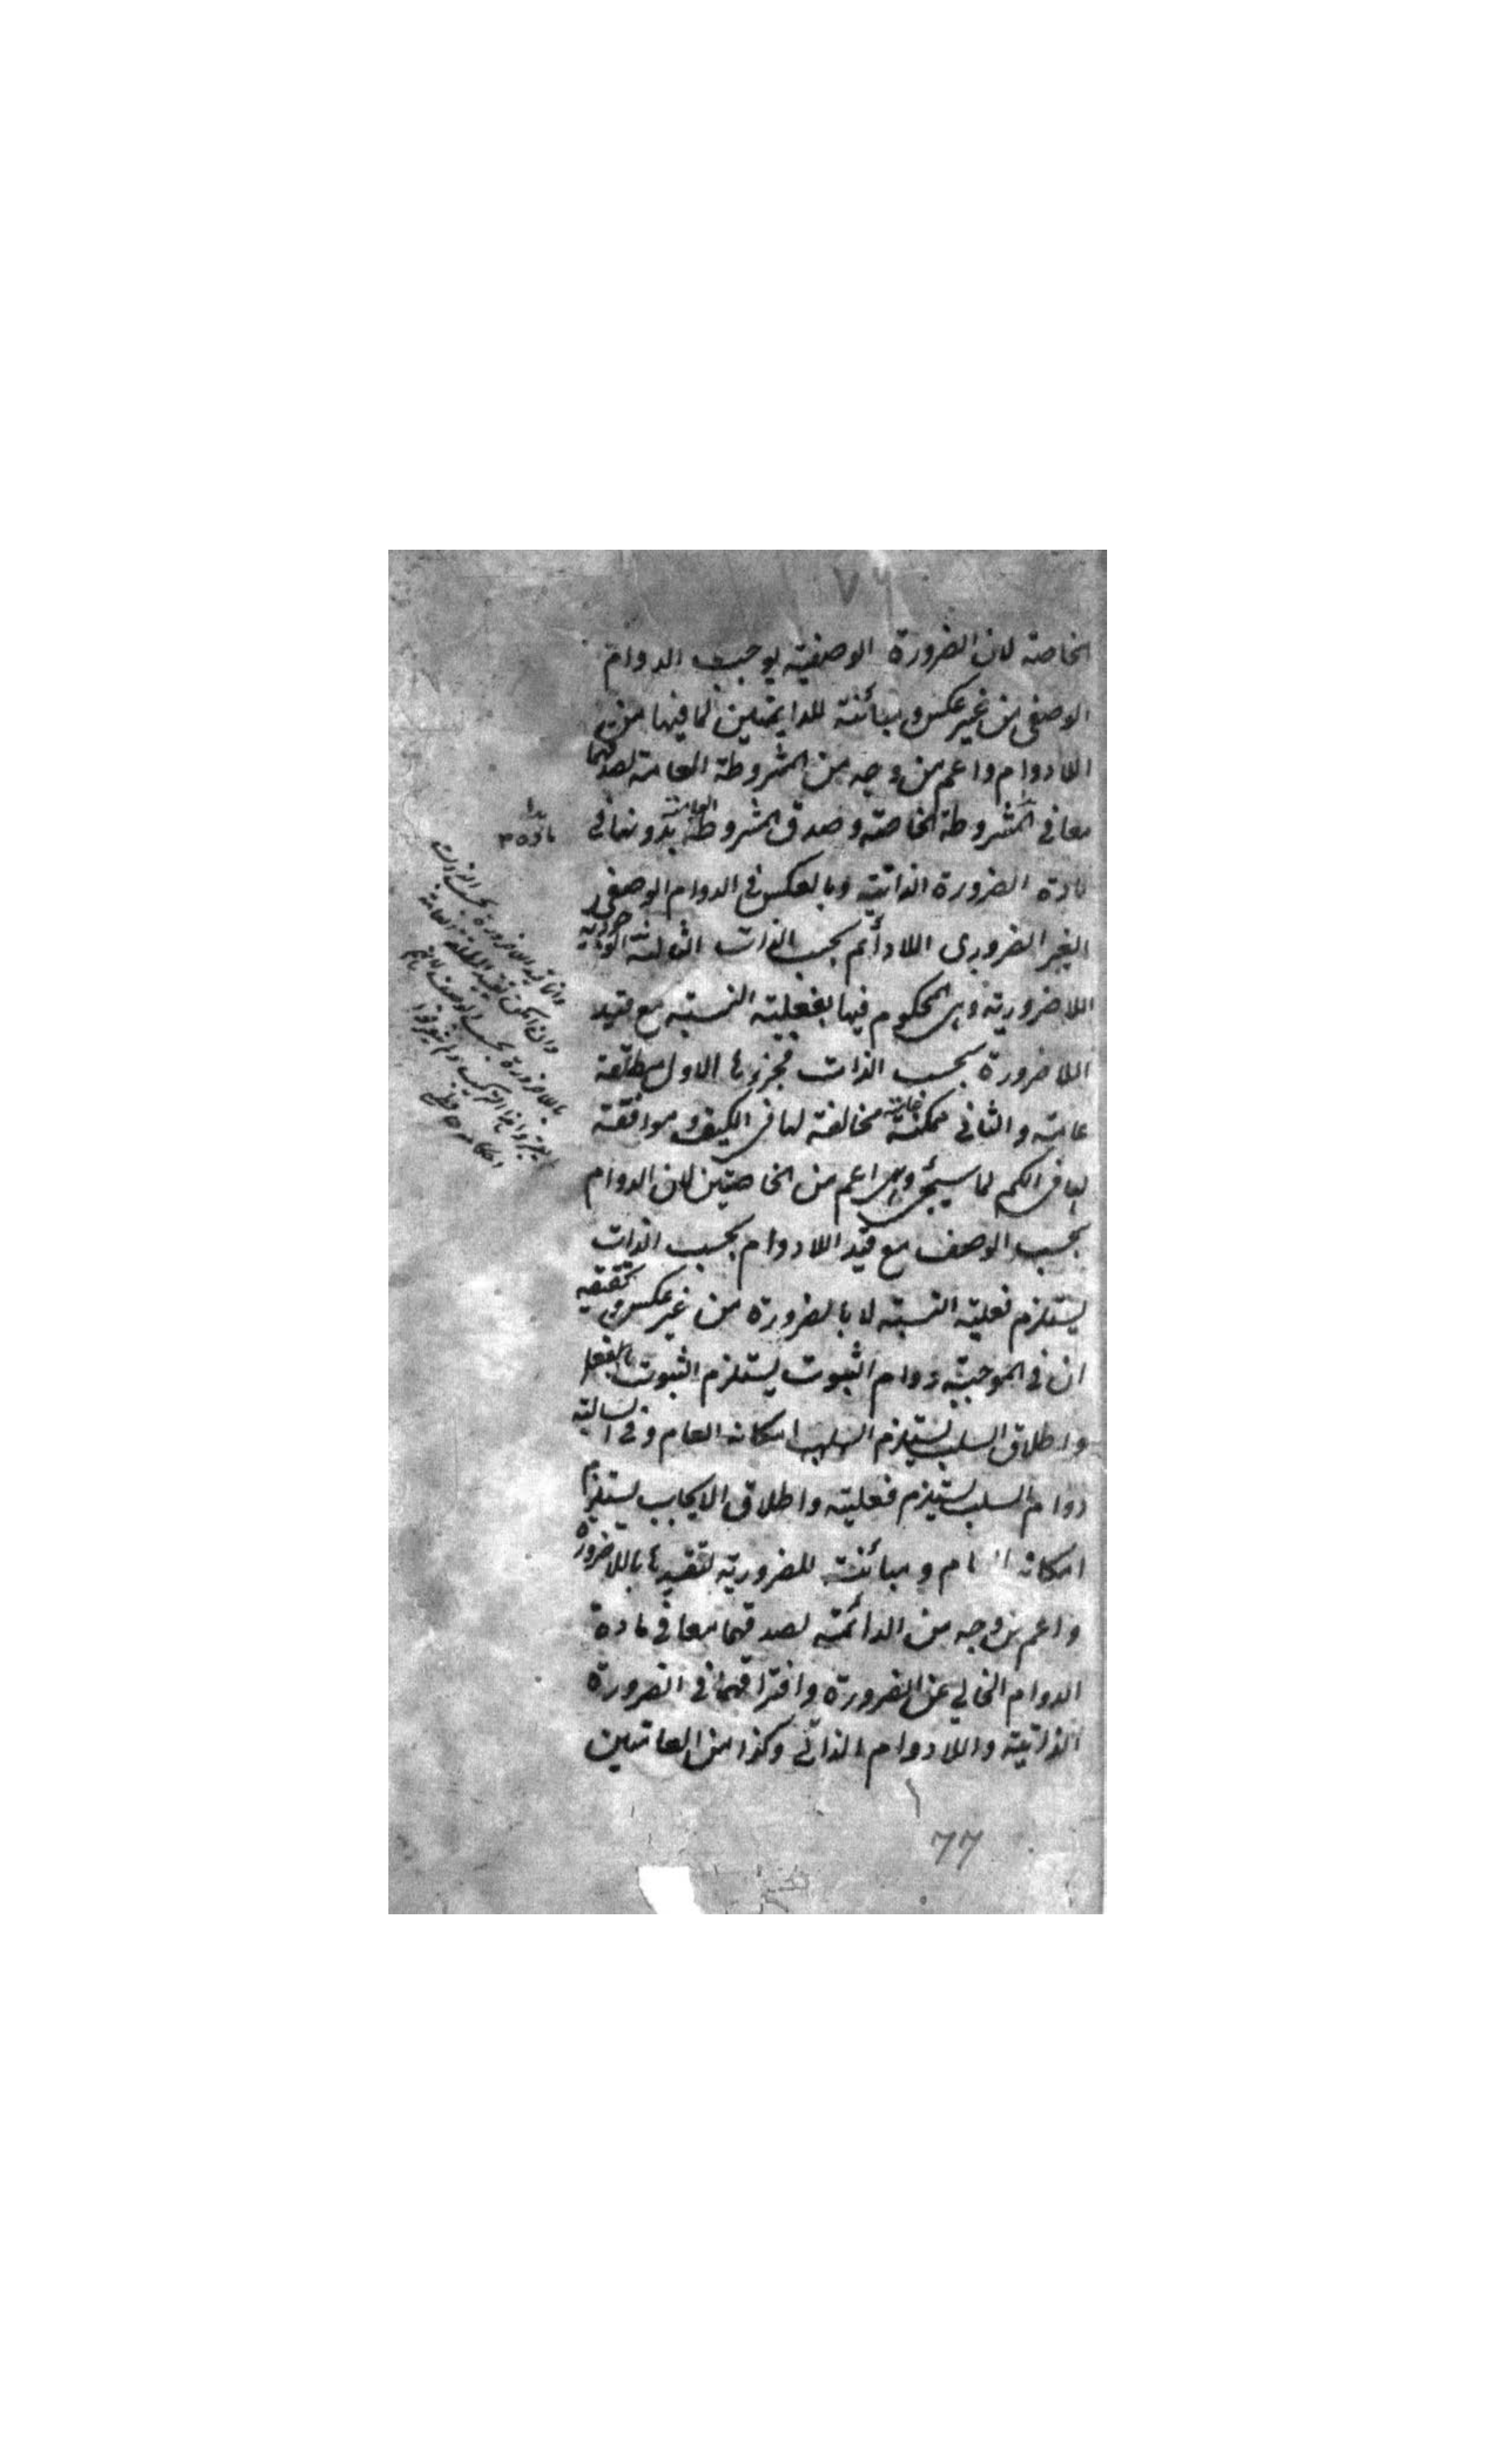 ٧٦
الخاصة لان الضرورة الوصفية يوجب الدوام
الوصفى من غير عكس ومبائنة للدايمتين لما فيها من
اللادوام واعم من وجه من المشروطة العامة لصدقهما
معا فى المشروطة الخاصة وصدق المشروطة العامة بدونها فى
مادة الضرورة الذاتية وبالعكس فى الدوام الوصفى
الغير الضرورى اللادائم بحسب الذات الثالثة الوجودية
اللاضرورية وهى المحكوم فيها بفعلية النسبة مع قيد
اللاضرورة بحسب الذات فجزءها الاول مطلقة
عامة والثانى ممكنة عامة مخالفة لها فى الكيف وموافقة
لها فى الكم لما سيجئ وهى اعم من الخاصتين لان الدوام
بحسب الوصف مع قيد اللادوام بحسب الذات
يستلزم فعلية النسبة لا بالضرورة من غير عكس وتحقيقه
ان فى الموجبة دوام الثبوت يستلزم الثبوت بالفعل
واطلاق السلب يستلزم السلب امكانه العام وفى السالبة
دوام السلب يستلزم فعليته واطلاق الايجاب يستلزم
امكانه العام ومبائنة للضرورية لتقييدها باللاضرورة
واعم من وجه من الدائمة لصدقهما معا فى مادة
الدوام الخالى عن الضرورة وافتراقهما فى الضرورة
الذاتية واللادوام الذاتى وكذا من العامتين
77
وانما قيد اللاضرورة بحسب الذات
وان امكن تقييد المطلقة العامة
باللاضرورة بحسب الوصف لانهم
لم يعتبروا هذا التركيب ولم يتعرفوا
احكامه